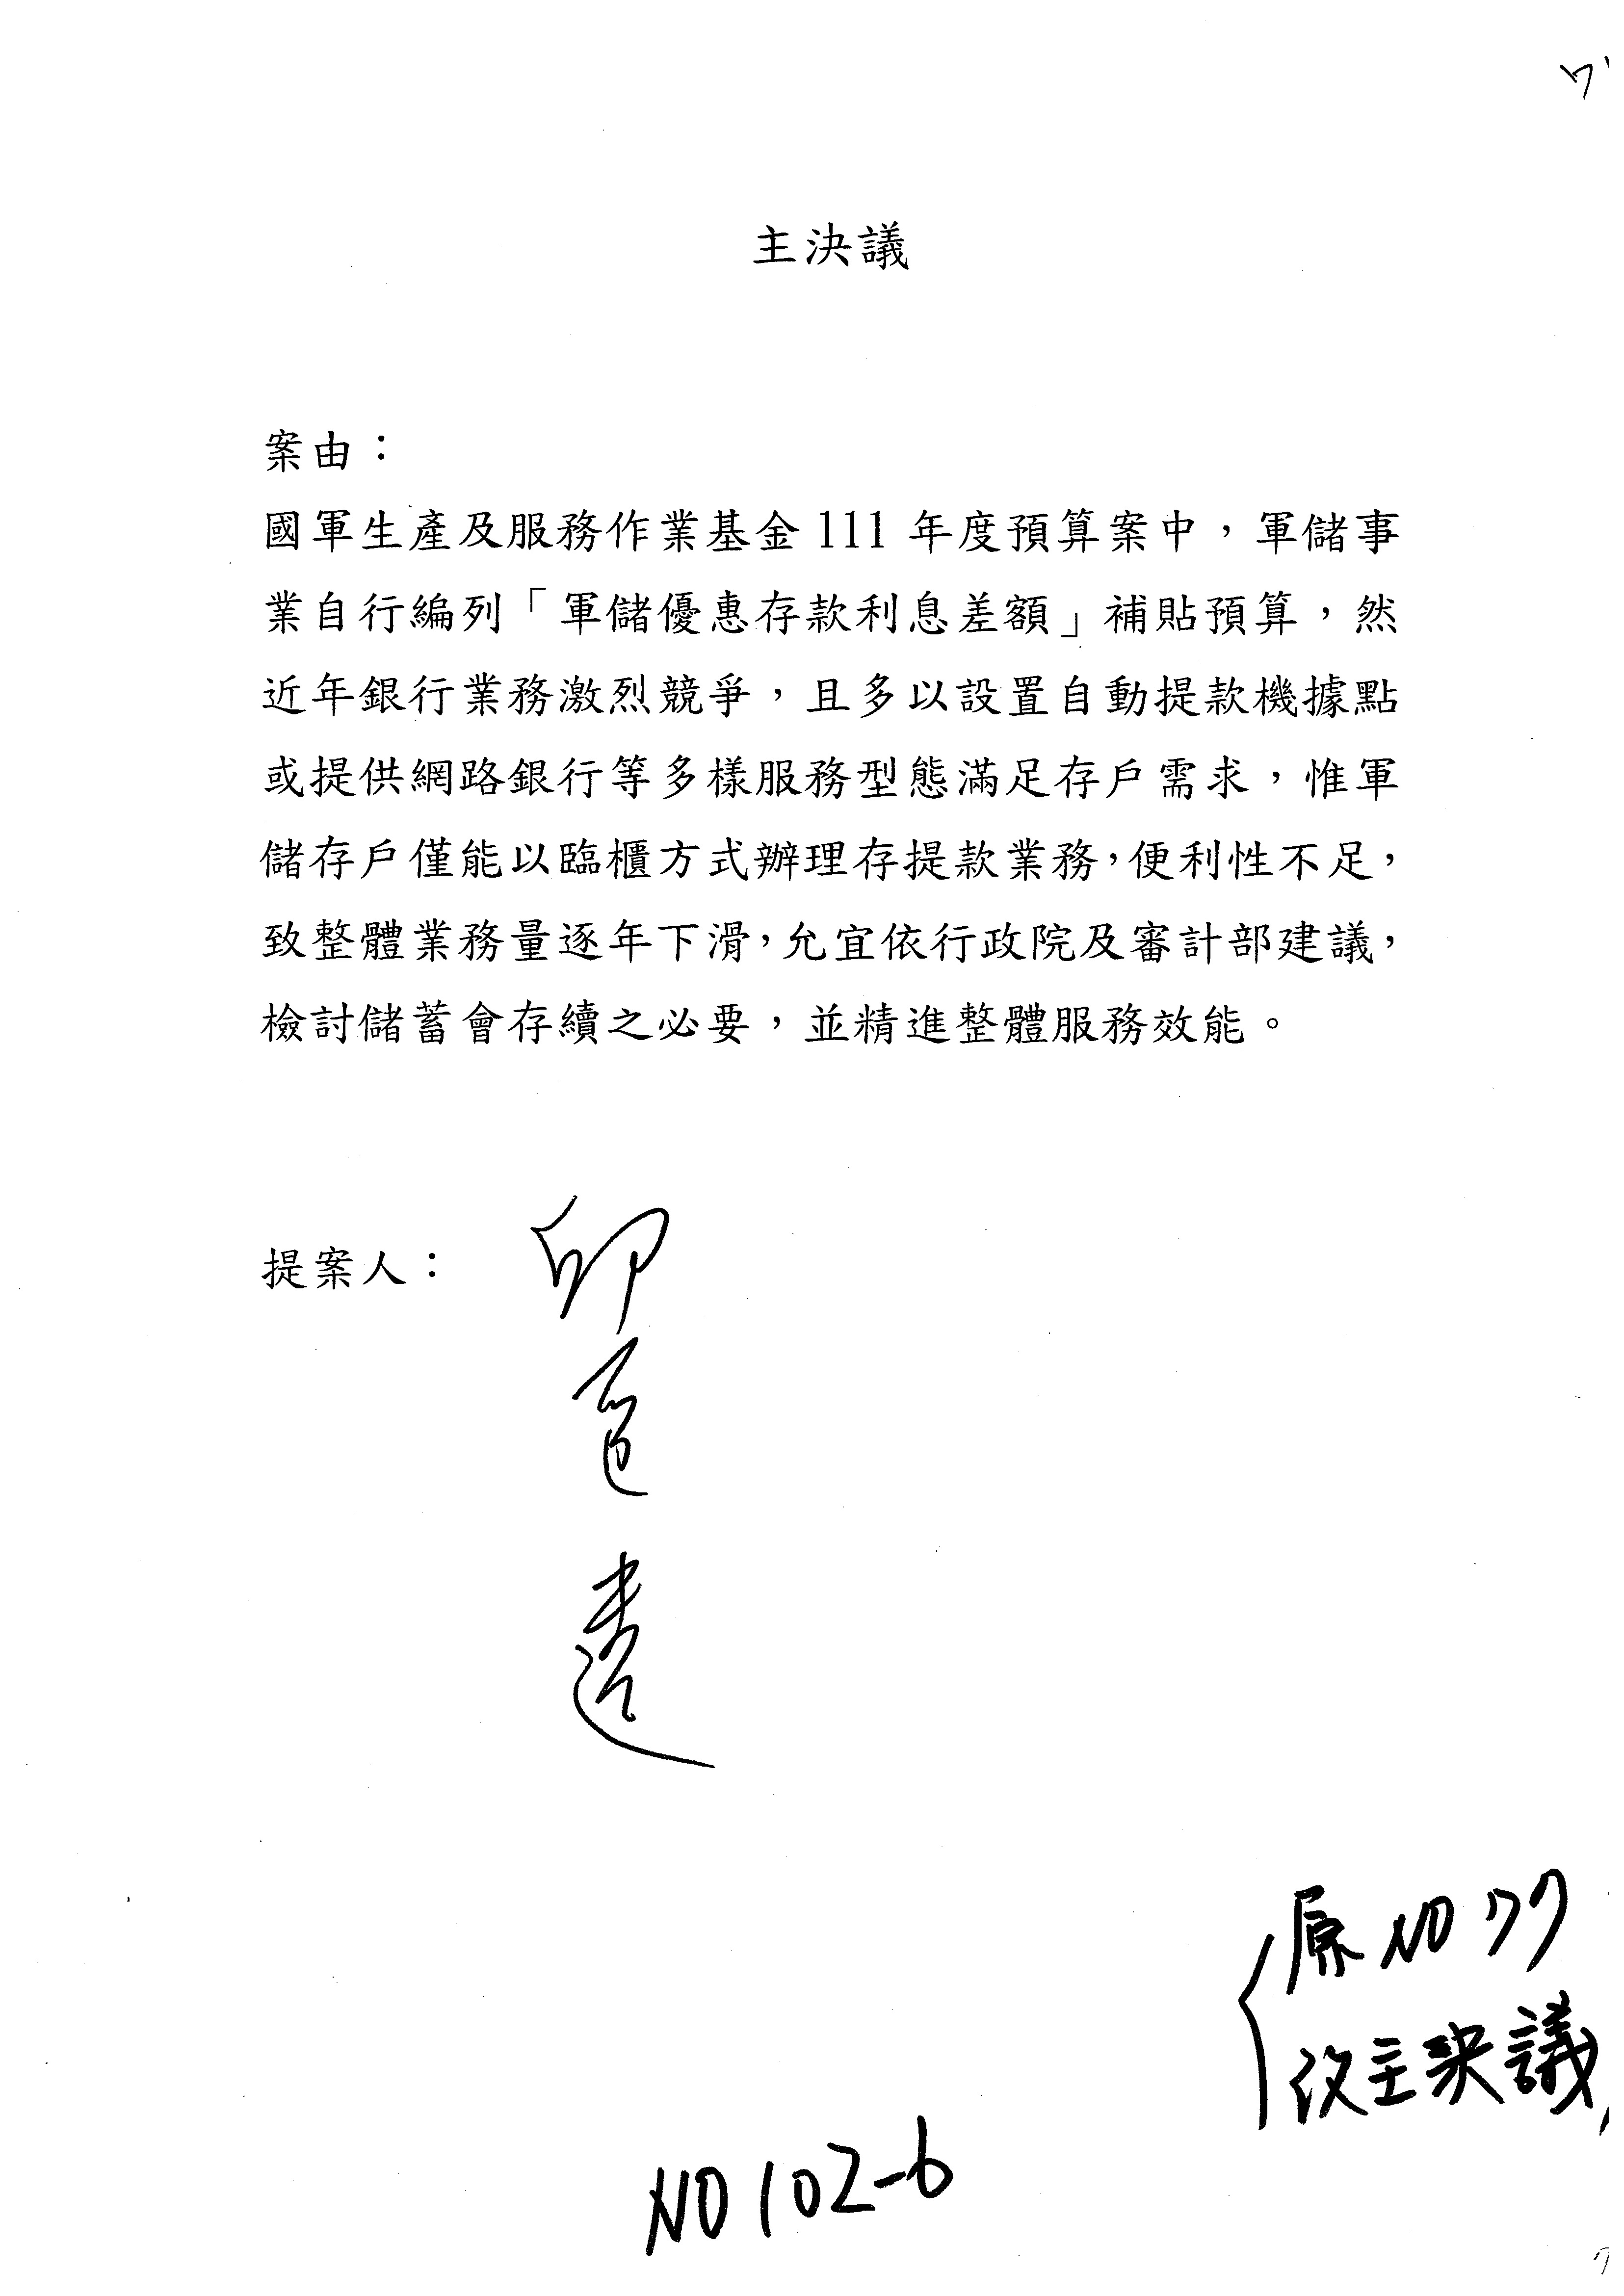 主決議
案由：
國軍生產及服務作業基金 111 年度預算案中，軍儲事
業自行編列「軍儲優惠存款利息差額」補貼預算，然
近年銀行業務激烈競爭，且多以設置自動提款機據點
或提供網路銀行等多樣服務型態滿足存戶需求，惟軍
儲存戶僅能以臨櫃方式辦理存提款業務，便利性不足，
致整體業務量逐年下滑，允宜依行政院及審計部建議，
檢討儲蓄會存續之必要，並精進整體服務效能。
提案人：
原 NO 77
改主決議
NO 102-6